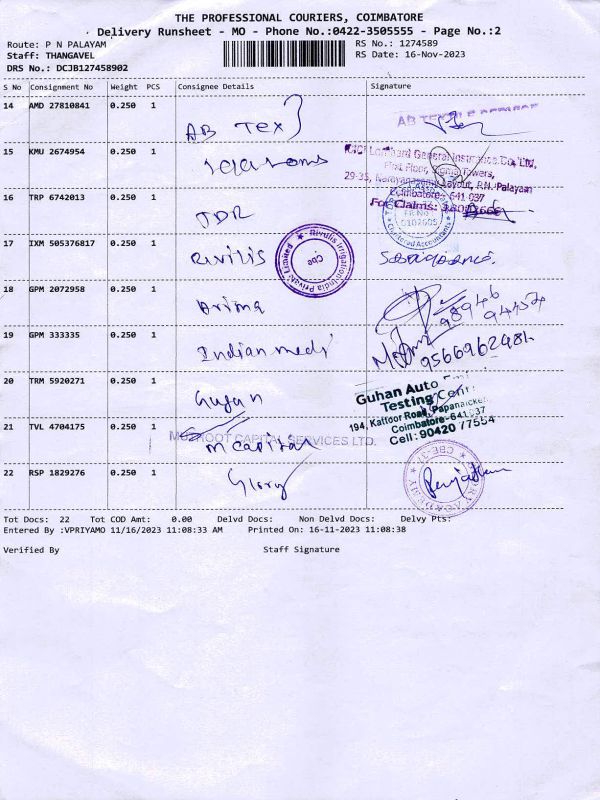 THE PROFESSIONAL COURIERS, COIMBATORE
Delivery Runsheet - MO - Phone No.:0422-3505555 - Page No.:2
Route: P N PALAYAM
RS No.: 1274589
Staff: THANGAVEL
RS Date: 16-Nov-2023
DRS No.: DCJB127458902
S No Consignment No Weight PCS Consignee Details Signature
14 AMD 27810841 0.250 1 AB Tex
15 KMU 2674954 0.250 1
ICICI Lombard General Insurance Co. Ltd,
First Floor, Towers,
29-35, Narayanasamy Layout, P.N. Palayam
Coimbatore - 641 037
For Claims:
16 TRP 6742013 0.250 1 JDR
FR No
Chartered Accountants
17 IXM 505376817 0.250 1 Rivilis
Rivulis Irrigation India Private Limited
Cbe
18 GPM 2072958 0.250 1 Arima
98946
94454
19 GPM 333335 0.250 1 Indian medi
9566962481
20 TRM 5920271 0.250 1 Gugan
Guhan Auto
Testing
194, Kattoor Road, Papanaicken
Coimbatore-641 037
Cell: 90420 77554
21 TVL 4704175 0.250 1 m capital
MUTHOOT CAPITAL SERVICES LTD.
22 RSP 1829276 0.250 1 Glory
CBE-37
ACADEMY
Tot Docs: 22 Tot COD Amt: 0.00 Delvd Docs: Non Delvd Docs: Delvy Pts:
Entered By :VPRIYAMO 11/16/2023 11:08:33 AM Printed On: 16-11-2023 11:08:38
Verified By Staff Signature